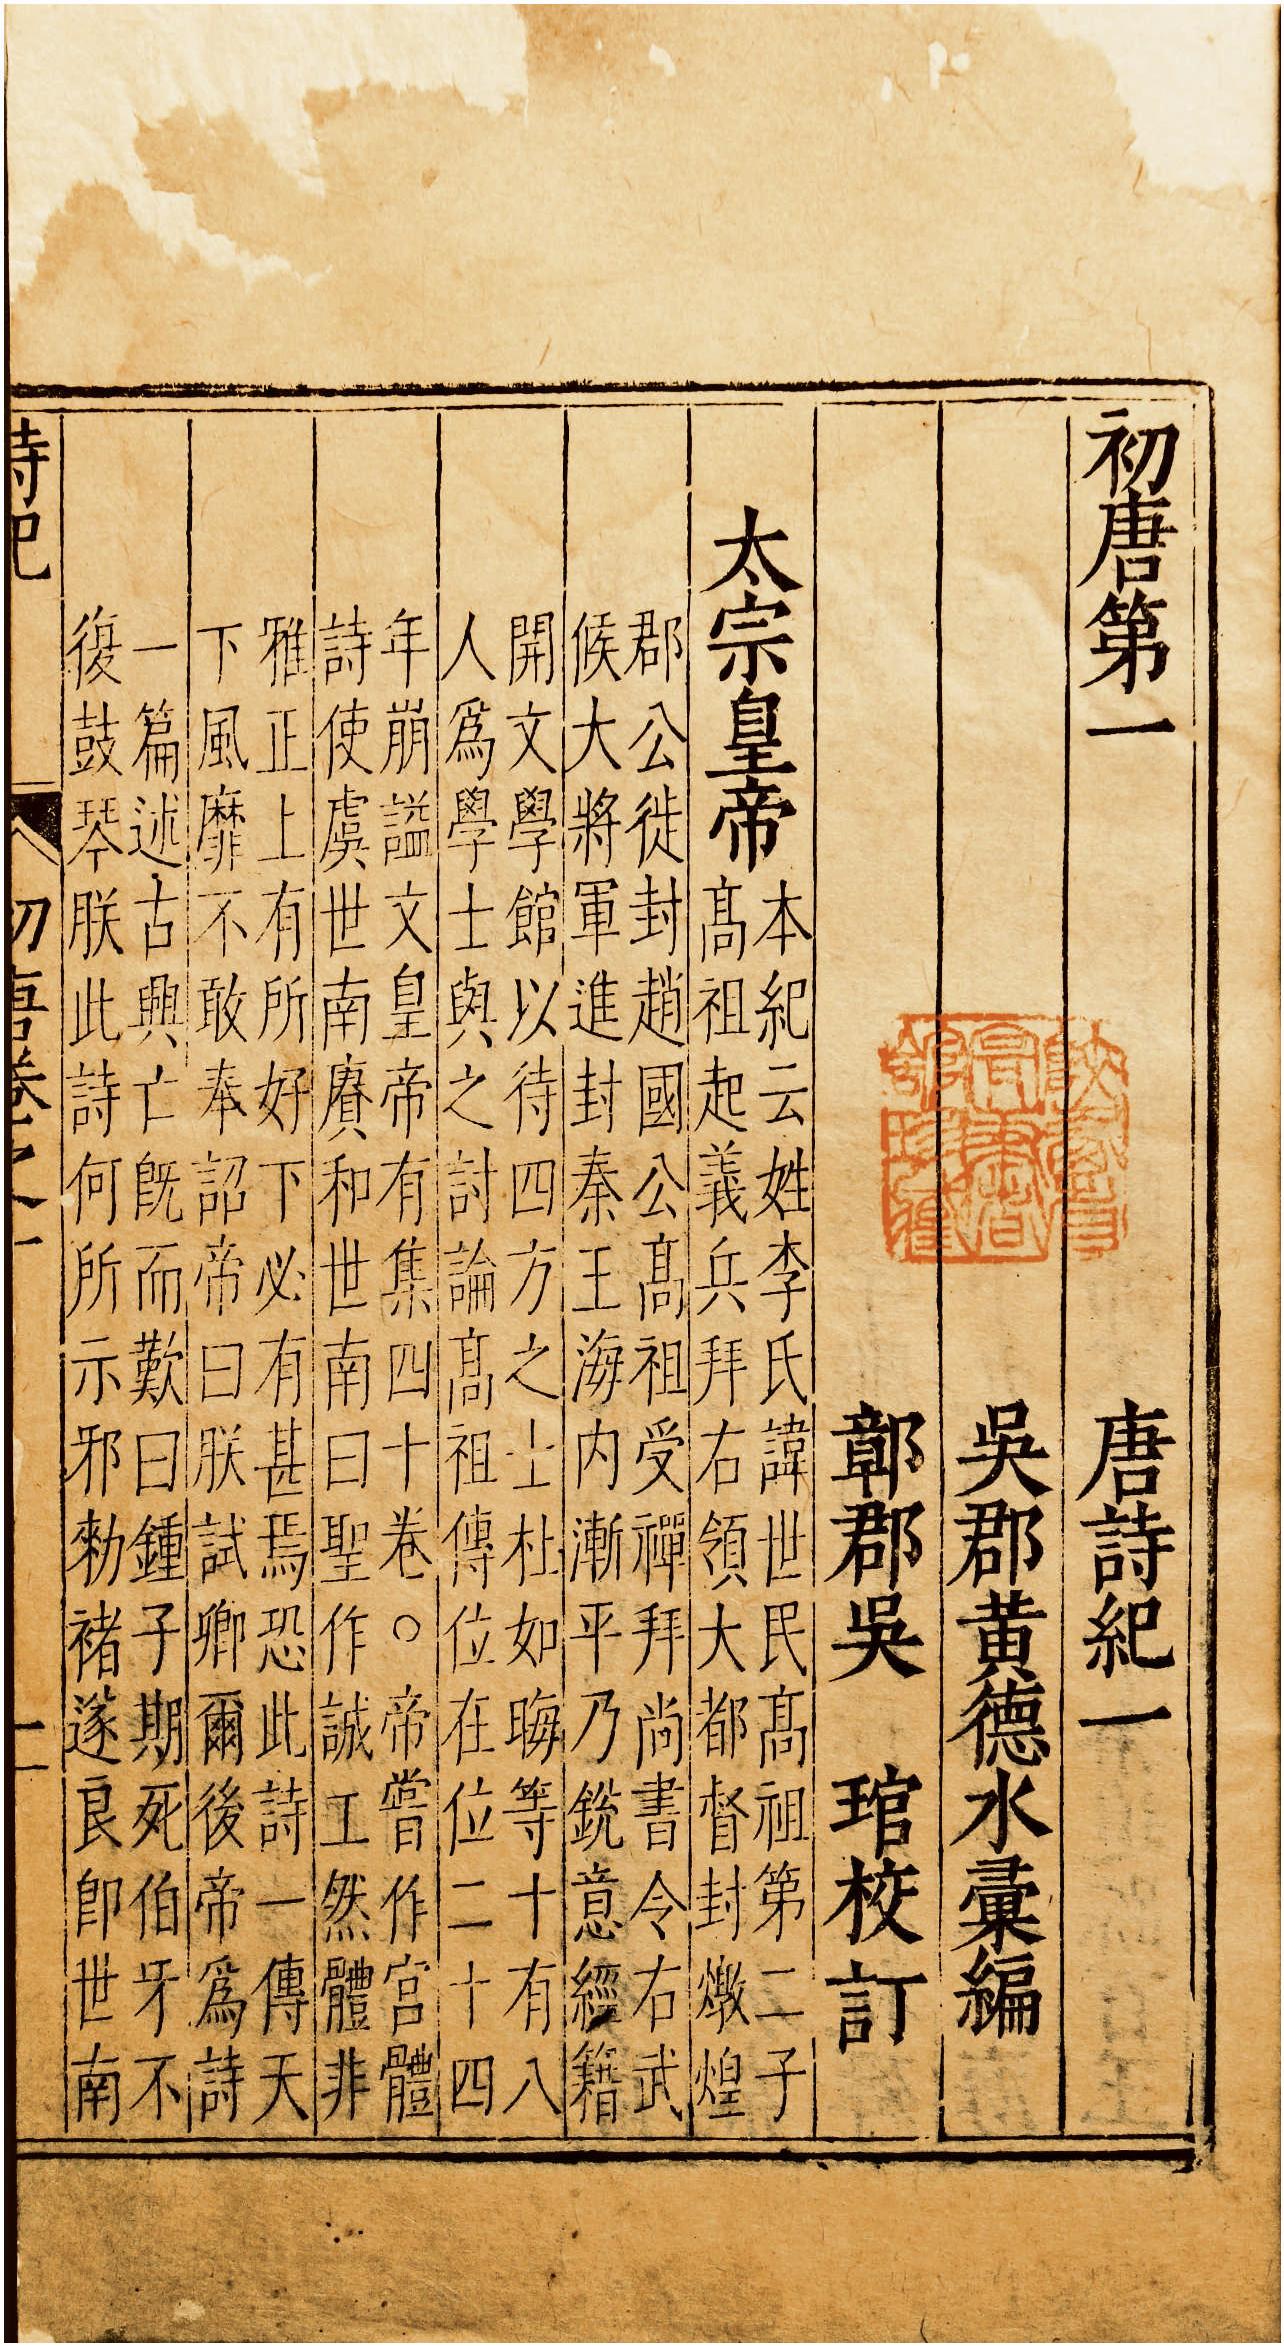 初唐第一　唐詩紀一
吳郡黃德水彙編
鄣郡吳　琯校訂
太宗皇帝
本紀云姓李氏諱世民髙祖第二子
髙祖起義兵拜右領大都督封燉煌
郡公徙封趙國公髙祖受禪拜尚書令右武
候大將軍進封秦王海内漸平乃銳意經籍
開文學館以待四方之士杜如晦等十有八
人爲學士與之討論髙祖傳位在位二十四
年崩謚文皇帝有集四十卷○帝嘗作宮體
詩使虞世南賡和世南曰聖作誠工然體非
雅正上有所好下必有甚焉恐此詩一傳天
下風靡不敢奉詔帝曰朕試卿爾後帝爲詩
一篇述古興亡旣而歎曰鍾子期死伯牙不
復鼓琴朕此詩何所示邪勑褚遂良卽世南
詩紀　初唐卷之一　一